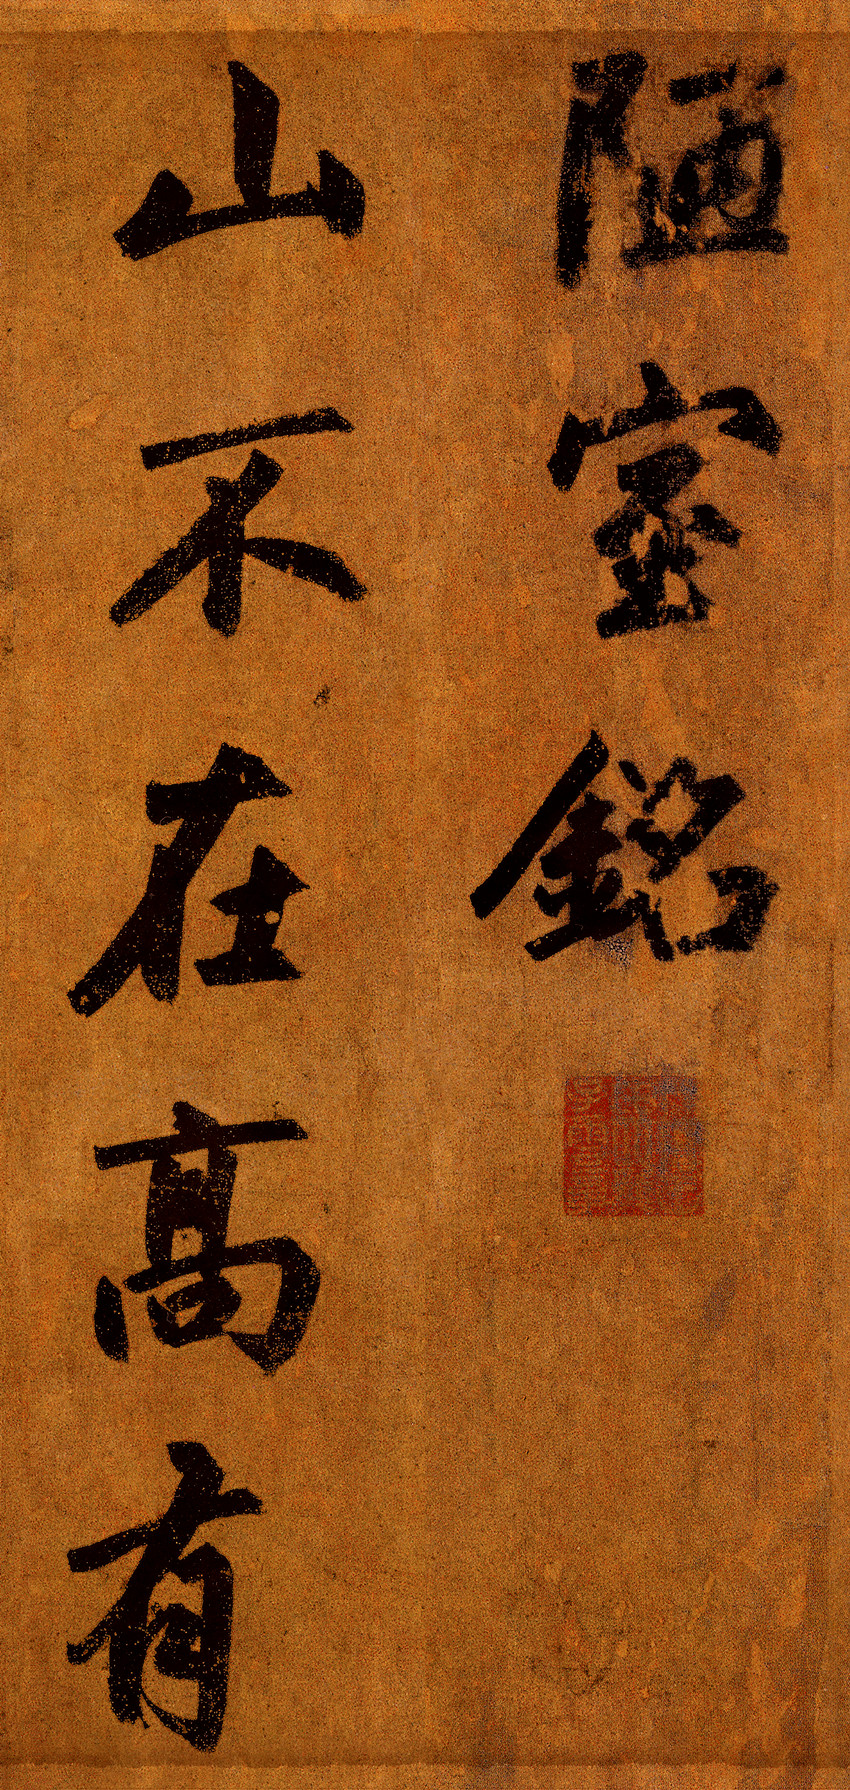 陋室銘
山不在高有